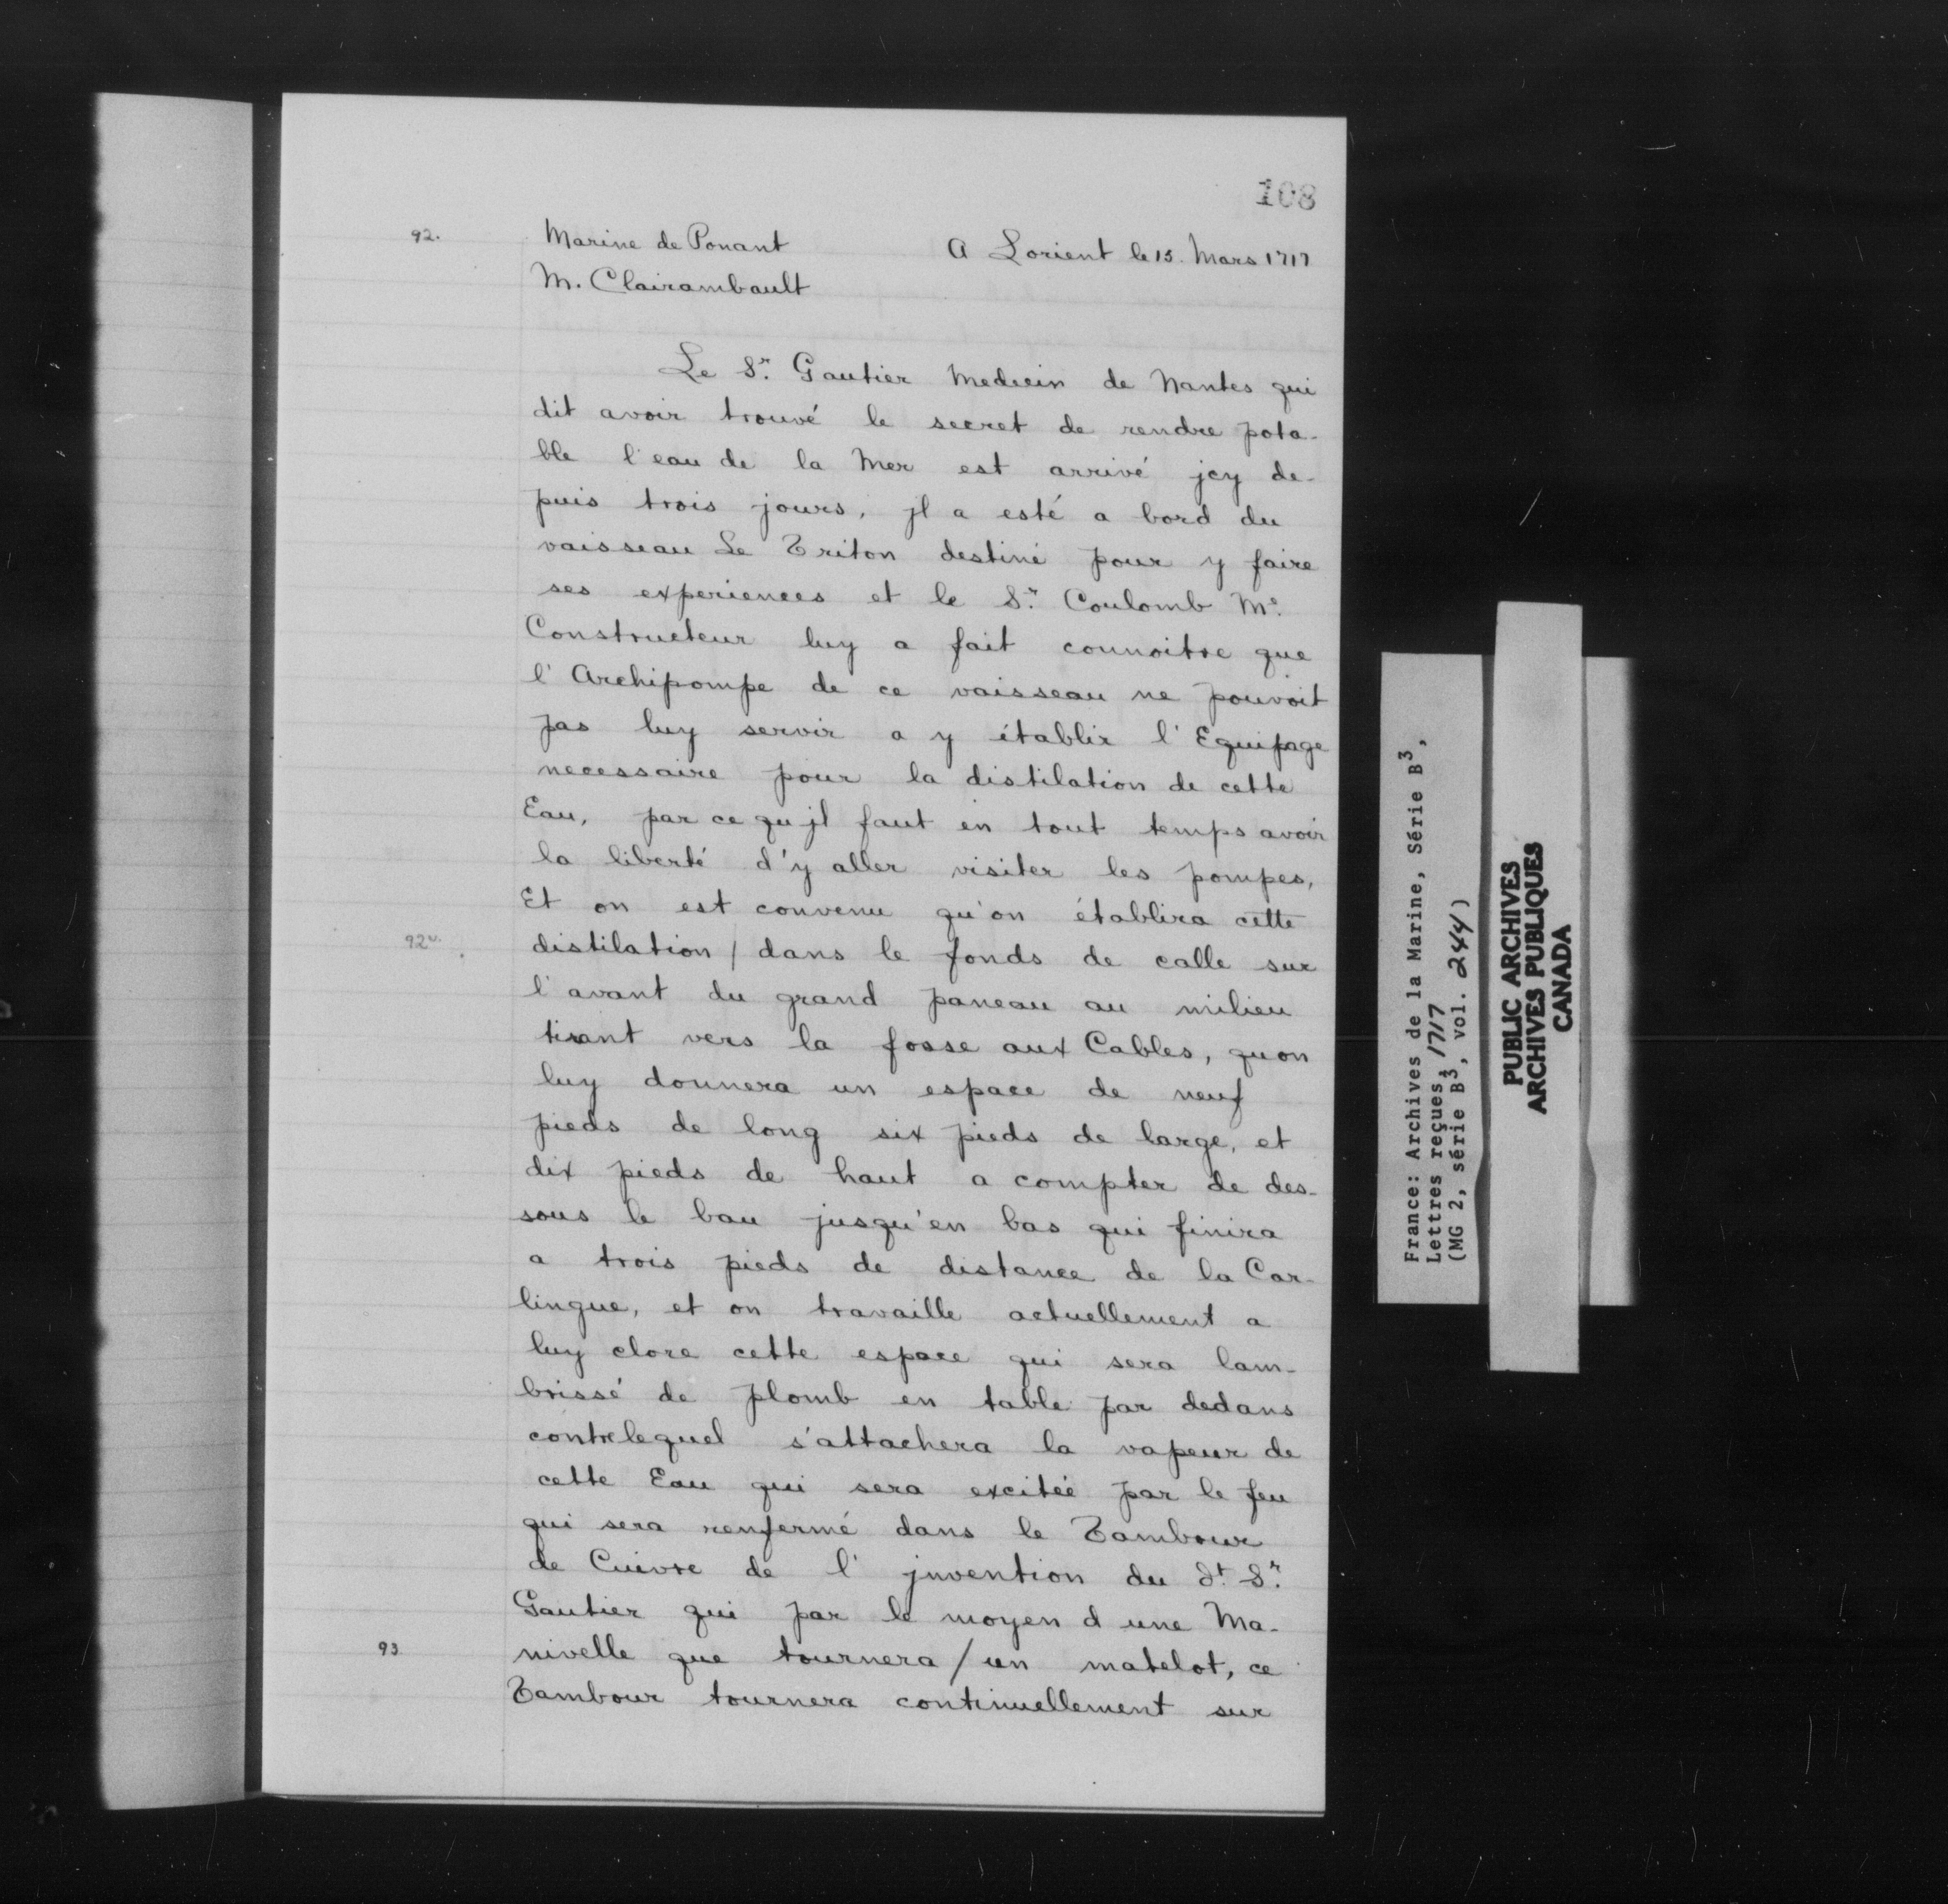 108
92.
Marine de Ponant
A Lorient le 15. Mars 1717
M. Clairambault
Le Sr. Gautier Medecin de Nantes qui
dit avoir trouvé le secret de rendre pota-
ble l'eau de la Mer est arrivé jcy de-
puis trois jours, jl a esté a bord du
vaisseau Le Triton destiné pour y faire
ses experiences et le Sr. Coulomb Me.
Constructeur luy a fait connoitre que
l'Archipompe de ce vaisseau ne pouvoit
pas luy servir a y établir l'Equipage
necessaire pour la distilation de cette
Eau, par ce qu jl faut en tout temps avoir
la liberté d'y aller visiter les pompes,
Et on est convenu qu'on établira cette
92v.
distilation / dans le fonds de calle sur
l'avant du grand paneau au milieu
tirant vers la fosse aux Cables, qu on
luy donnera un espace de neuf
pieds de long six pieds de large, et
dix pieds de haut a compter de des-
sous le bau jusqu'en bas qui finira
a trois pieds de distance de la Car-
lingue, et on travaille actuellement a
luy clore cette espace qui sera lam-
brissé de plomb en table par dedans
contrelequel s'attachera la vapeur de
cette Eau qui sera excitée par le feu
qui sera renfermé dans le Tambour
de Cuivre de l'jnvention du dt. Sr.
Gautier qui par le moyen d une Ma-
93
nivelle que tournera / un matelot, ce
Tambour tournera continuellement sur
France: Archives de la Marine, Série B3,
Lettres reçues, 1717
(MG 2, série B3, vol. 244)
PUBLIC ARCHIVES
ARCHIVES PUBLIQUES
CANADA